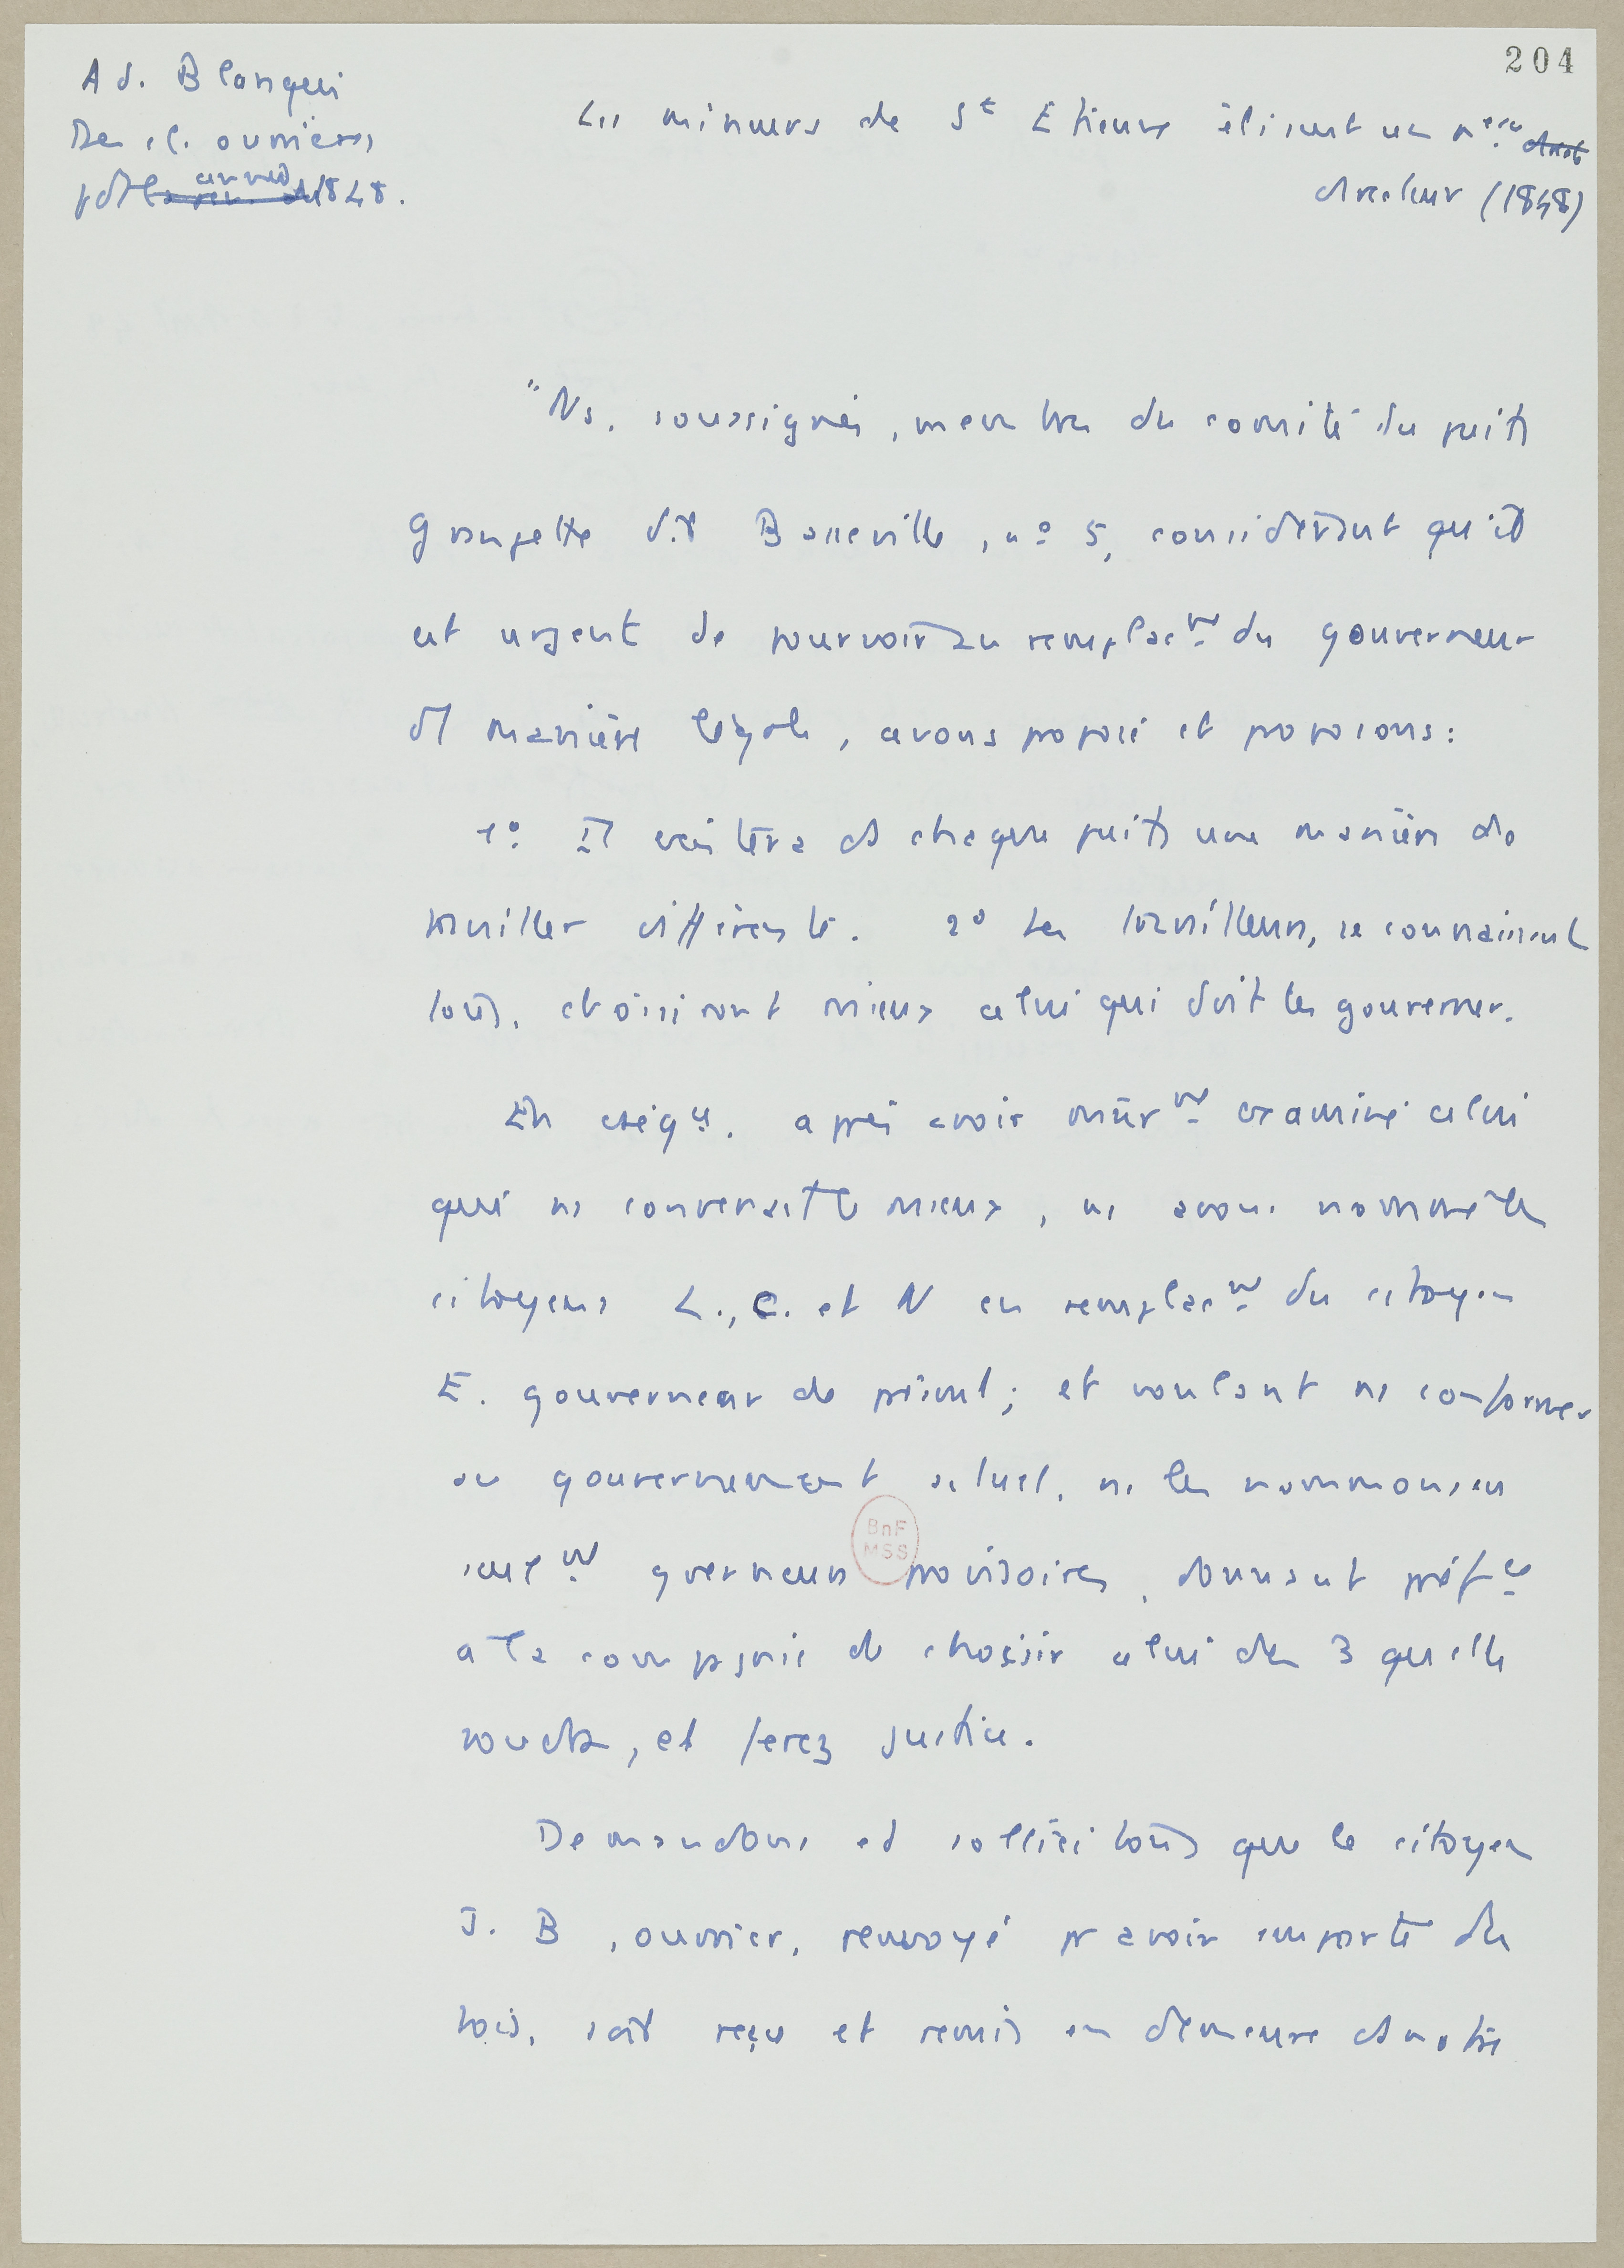 204
Ad. Blanqui
Des cl. ouvrières
pdt l'année 1848.
Les mineurs de St Etienne élisent un nveau
directeur (1848)
"Ns, soussignés, membres du comité du puits
Grangette dit Basseville, no 5, considérant qu'il
est urgent de pourvoir au remplact du gouverneur
d manière légale, avons proposé et proposons:
1o Il existera ds chaque puits une manière de
travailler différente. 2o Les travailleurs, se connaissant
tous, choisiront mieux celui qui doit les gouverner.
En cséqce. après avoir mûrmt examiné celui
qui ns convenait le mieux, ns avons nommé les
citoyens L., C. et N en remplacmt du citoyen
E. gouverneur de présent; et voulant ns conformer
au gouvernement actuel, ns les nommons en
seulmt gverneurs provisoires, donnant préfce
à la compagnie de choisir celui des 3 qu'elle
voudra, et ferez justice.
Demandons et sollicitons que le citoyen
J. B, ouvrier, renvoyé pr avoir emporté du
bois, soit reçu et remis en demeure ds notre
BnF
MSS